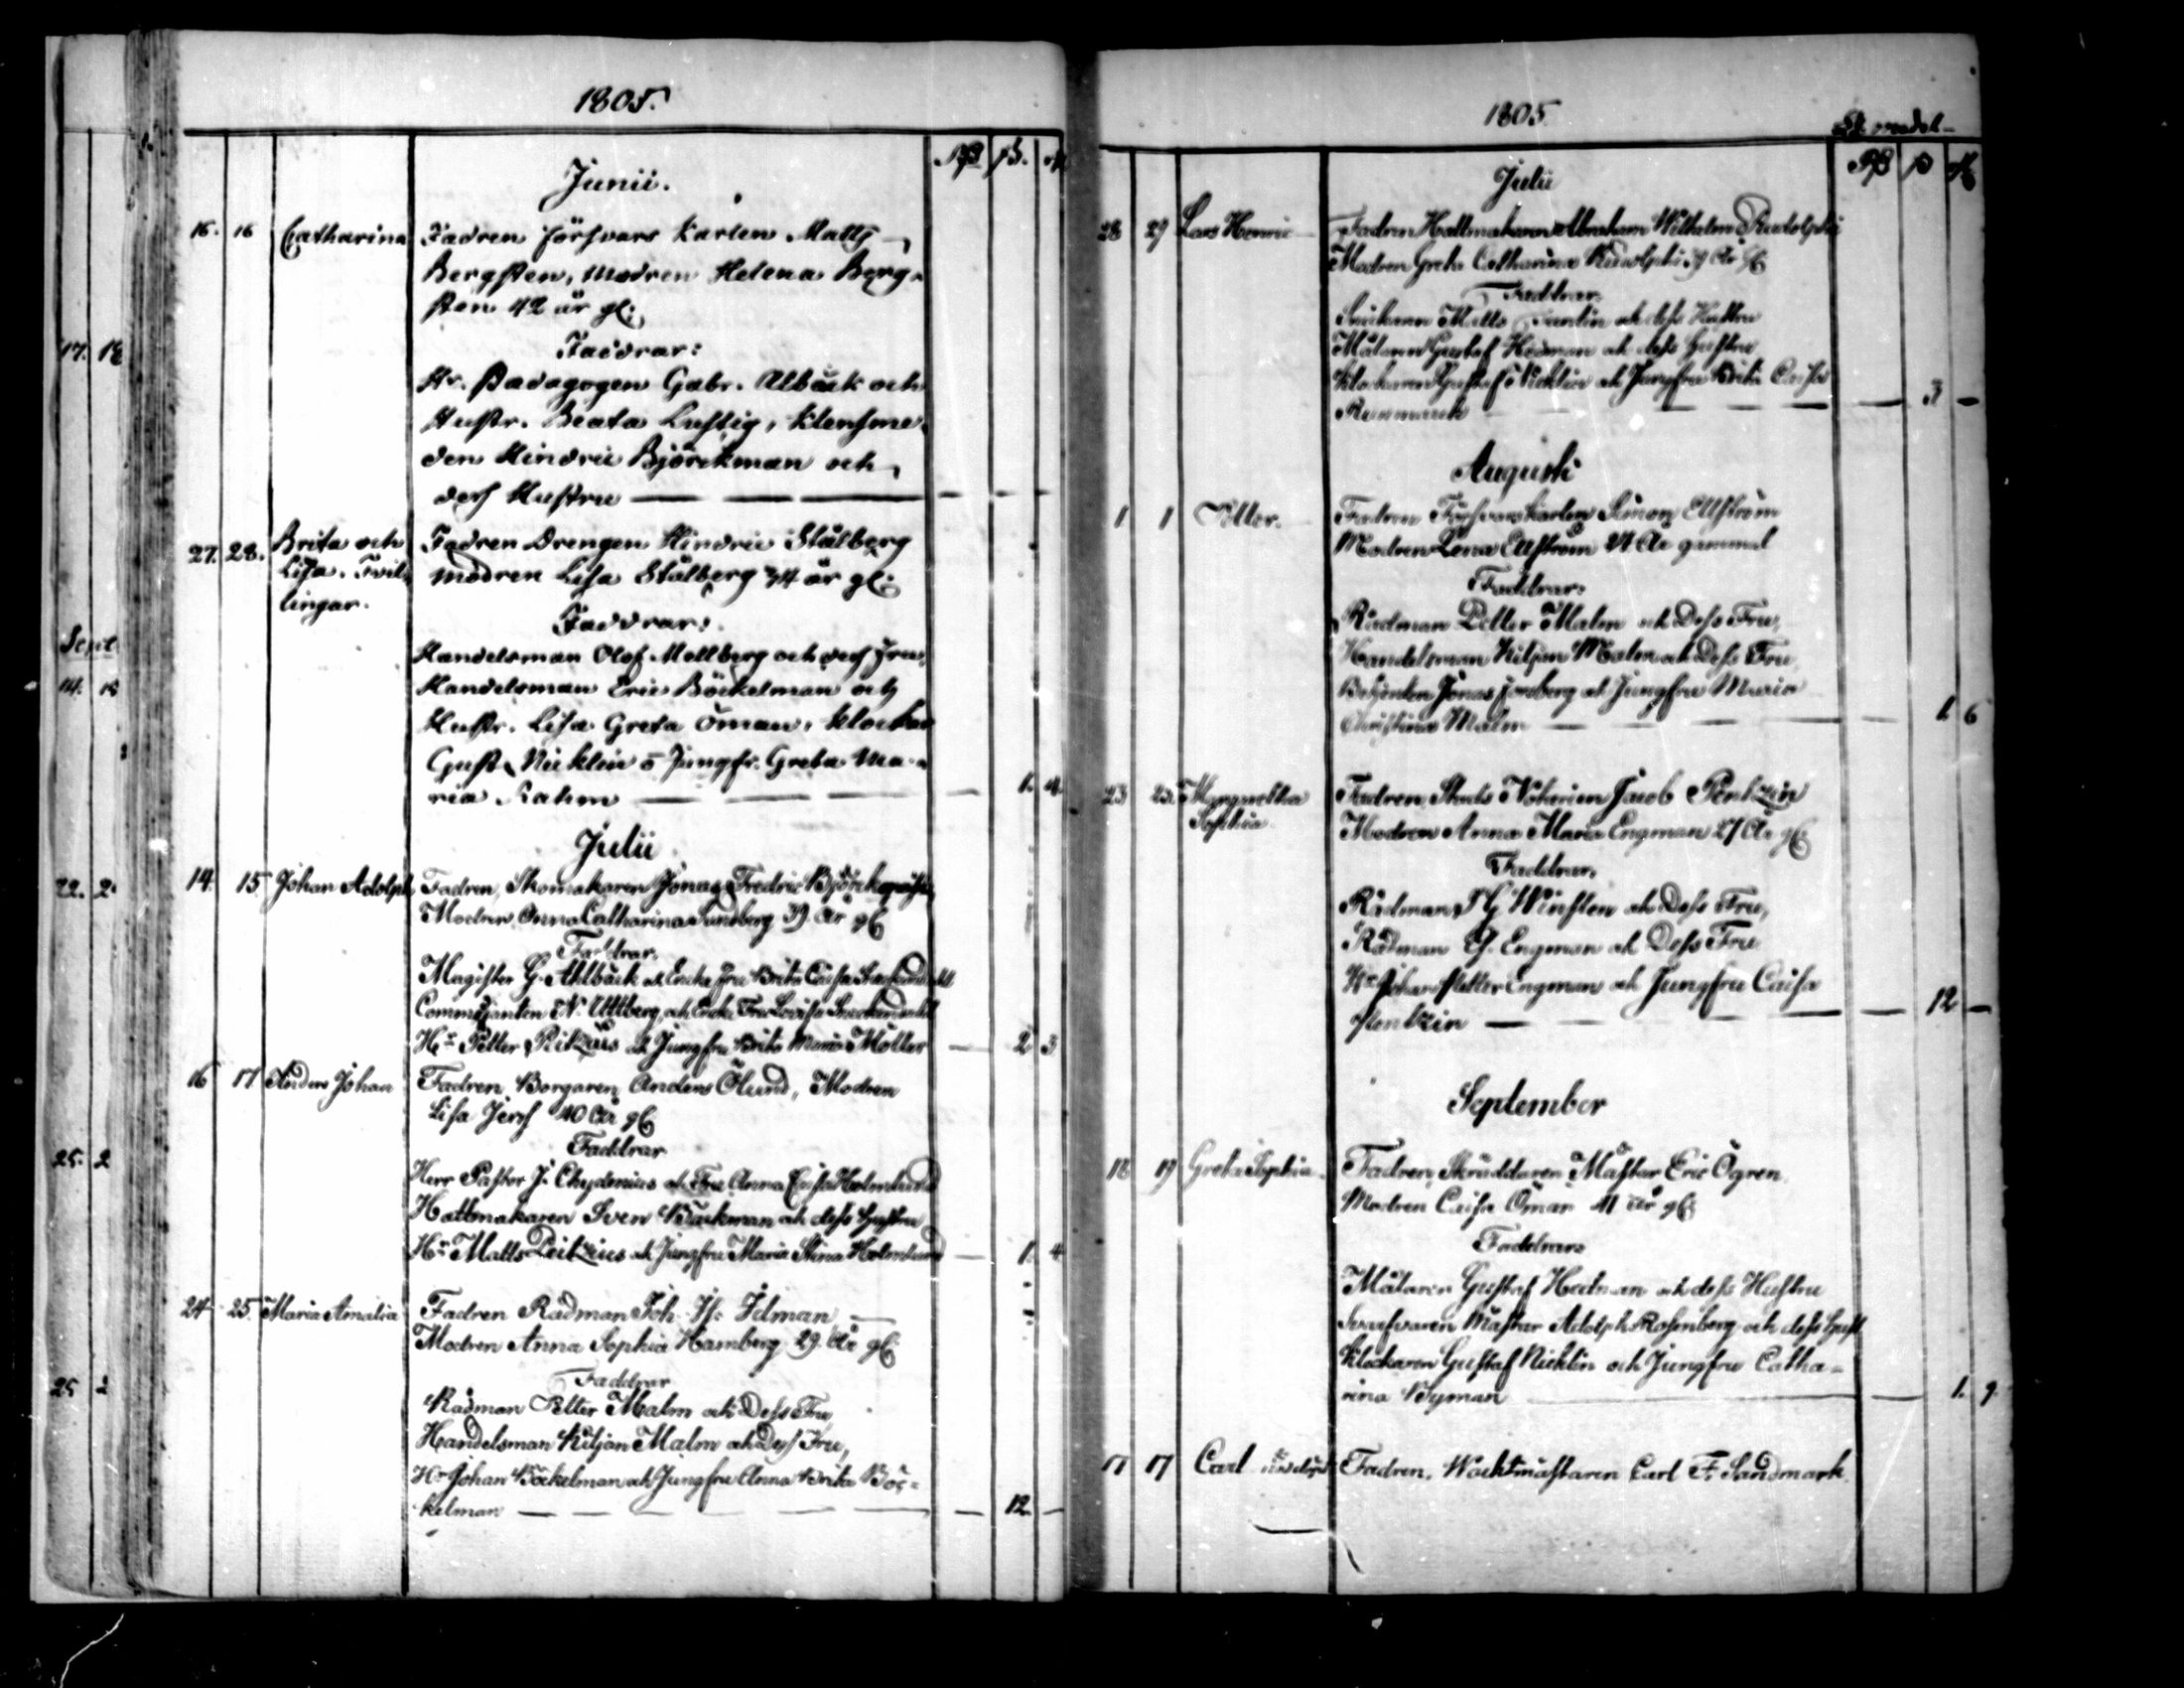 1805.
Junii.
16. 16 Catharina Fadren Försvars Karlen Matts
Bergsten, Modren Helena Berg-
sten 42 år gl:
Faddrar:
Hr. Pædagogen Gabr. Albäck och
Hustr. Beata Lustig, Klensme-
den Hindric Björckman och
dess Hustru
27. 28. Brita och Lisa. Tvil- lingar. Fadren Drengen Hindric Stålberg
Modren Lisa Stålberg 34 år gl:
Faddrar:
Handelsman Olof Mellberg och dess Fru,
Handelsman Eric Böckelman och
Hustr. Lisa Greta Öman, Klockar
Gust. Nicklin o Jungfr. Greta Ma-
ria Rahm 1. 4.
Julii
14. 15. Johan Adolph Fadren, Skomakaren Jonas Fredric
Modren Anna Catharina Sundberg 39 År gl
Faddrar.
Magister G. Ahlbäck och Enche Fru Brita Caisa
N. Uttberg och Enche Fru Lovisa
Hr Petter och Jungfru Brita Maria Möller 2 3
16 17 Anders Johan Fadren Borgaren Anders Ölund, Modren
Lisa Jerf 40 År gl
Faddrar
Herr Pastor J. Chydenius och Fru Anna Caisa Holmlund
Hattmakaren Sven Bäckman och dess Hustru
Hr Matts Peitzius och Jungfru Maria Stina Holmlund 1. 4
24 25. Maria Amalia Fadren Rådman Joh. Is. Idman
Modren Anna Sophia Hamberg 29 År gl:
Faddrar
Rådman Petter Malm och Dess Fru,
Handelsman Kiljan Malm och Dess Fru,
Hr Johan Böckelman och Jungfru Anna Brita Böc-
kelman 12.
1805
Julii
28 29 Lars Henric Fadren Hattmakaren Abraham Wilhelm Rudolphi
Modren Greta Catharina Rudolphi 39 År gl
Faddrar.
Matts och dess Hustru
Målaren Gustaf Hedman och dess Hustru
Klockaren Gustaf Nicklin och Jungfru Brita Caisa
Renmarck 3
Augusti
1 1 Petter. Fadren Försvarskarlen Simon Ellström
Modren Lena Ellström År gammal
Faddrar:
Rådman Petter Malm och Dess Fru,
Handelsman Kiljan Malm och Dess Fru,
Betjenten Jonas och Jungfru Maria
Christina Malm 1. 6
23 25. Margaretha Sophia. Fadren, Stads Notarien Jacob Pentzin
Modren Anna Maria Engman 27 År gl
Faddrar.
Rådman Winsten och Dess Fru,
Rådman G. Engman och Dess Fru
Hr Johan Petter Engman och Jungfru Caisa
Pentzin 12
September
18 19 Greta Sophia. Fadren, Skräddaren Mästar Eric Ögren.
Modren Caisa Öman 41 år gl:
Faddrar
Målaren Gustaf Hedman och dess Hustru
Svarfvaren Mästar Adolph Rosenberg och dess Hust
Klockaren Gustaf Nicklin och Jungfru Catha-
rina Byman 1. 9
17 17 Carl Fadren, Wachtmästaren Carl F. Sandmark.